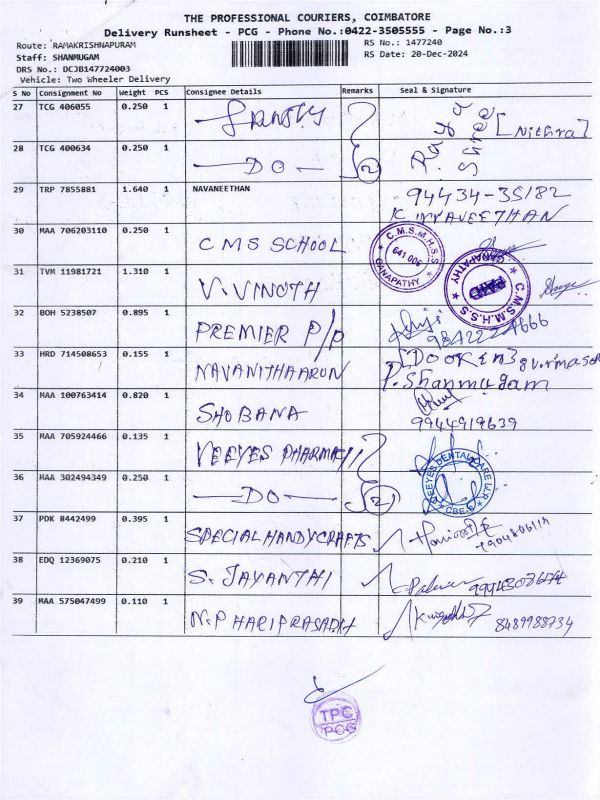 THE PROFESSIONAL COURIERS, COIMBATORE
Delivery Runsheet - PCG - Phone No.:0422-3505555 - Page No.:3
Route: RAMAKRISHNAPURAM
RS No.: 1477240
Staff: SHANMUGAM
RS Date: 20-Dec-2024
DRS No.: DCJB147724003
Vehicle: Two Wheeler Delivery
S No Consignment No Weight PCS Consignee Details Remarks Seal & Signature
27 TCG 406055 0.250 1 Raya Shree [Nithra]
28 TCG 400634 0.250 1 — DO — 2
29 TRP 7855881 1.640 1 NAVANEETHAN 94434-35182
30 MAA 706203110 0.250 1 CMS SCHOOL C.M.S.M.H.S.S 641 006 GANAPATHY
31 TVM 11981721 1.310 1 V. VINOTH C.M.S.M.H.S.S. GANAPATHY
32 BOH 5238507 0.895 1 PREMIER P/P
33 HRD 714508653 0.155 1 NAVANITHAARON P. Shanmugam
34 MAA 100763414 0.820 1 SHOBANA 9944919639
35 MAA 705924466 0.135 1 VEEYES PHARMACY
36 MAA 302494349 0.250 1 — DO — 2 VEEYES DENTAL CARE CBE-6
37 PDK 8442499 0.395 1 SPECIAL HANDYCRAFTS
38 EDQ 12369075 0.210 1 S. JAYANTHI
39 MAA 575047499 0.110 1 N.P HARIPRASADH 8489988734
TPC
PCG